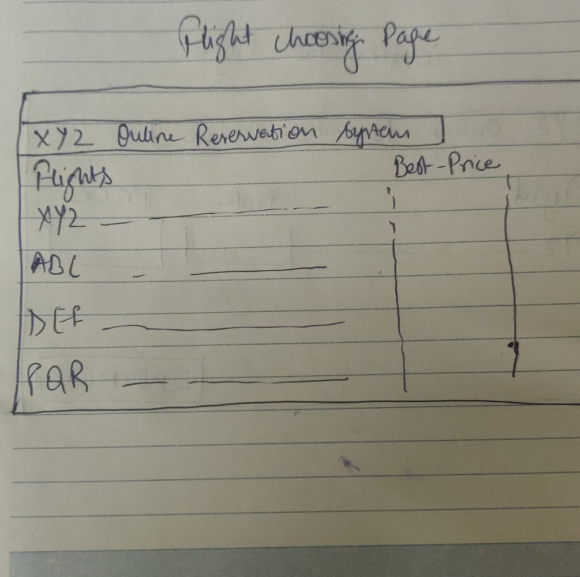 Flight choosing Page
XYZ Online Reservation System
Flights Best-Price
XYZ
ABC
DEF
PQR